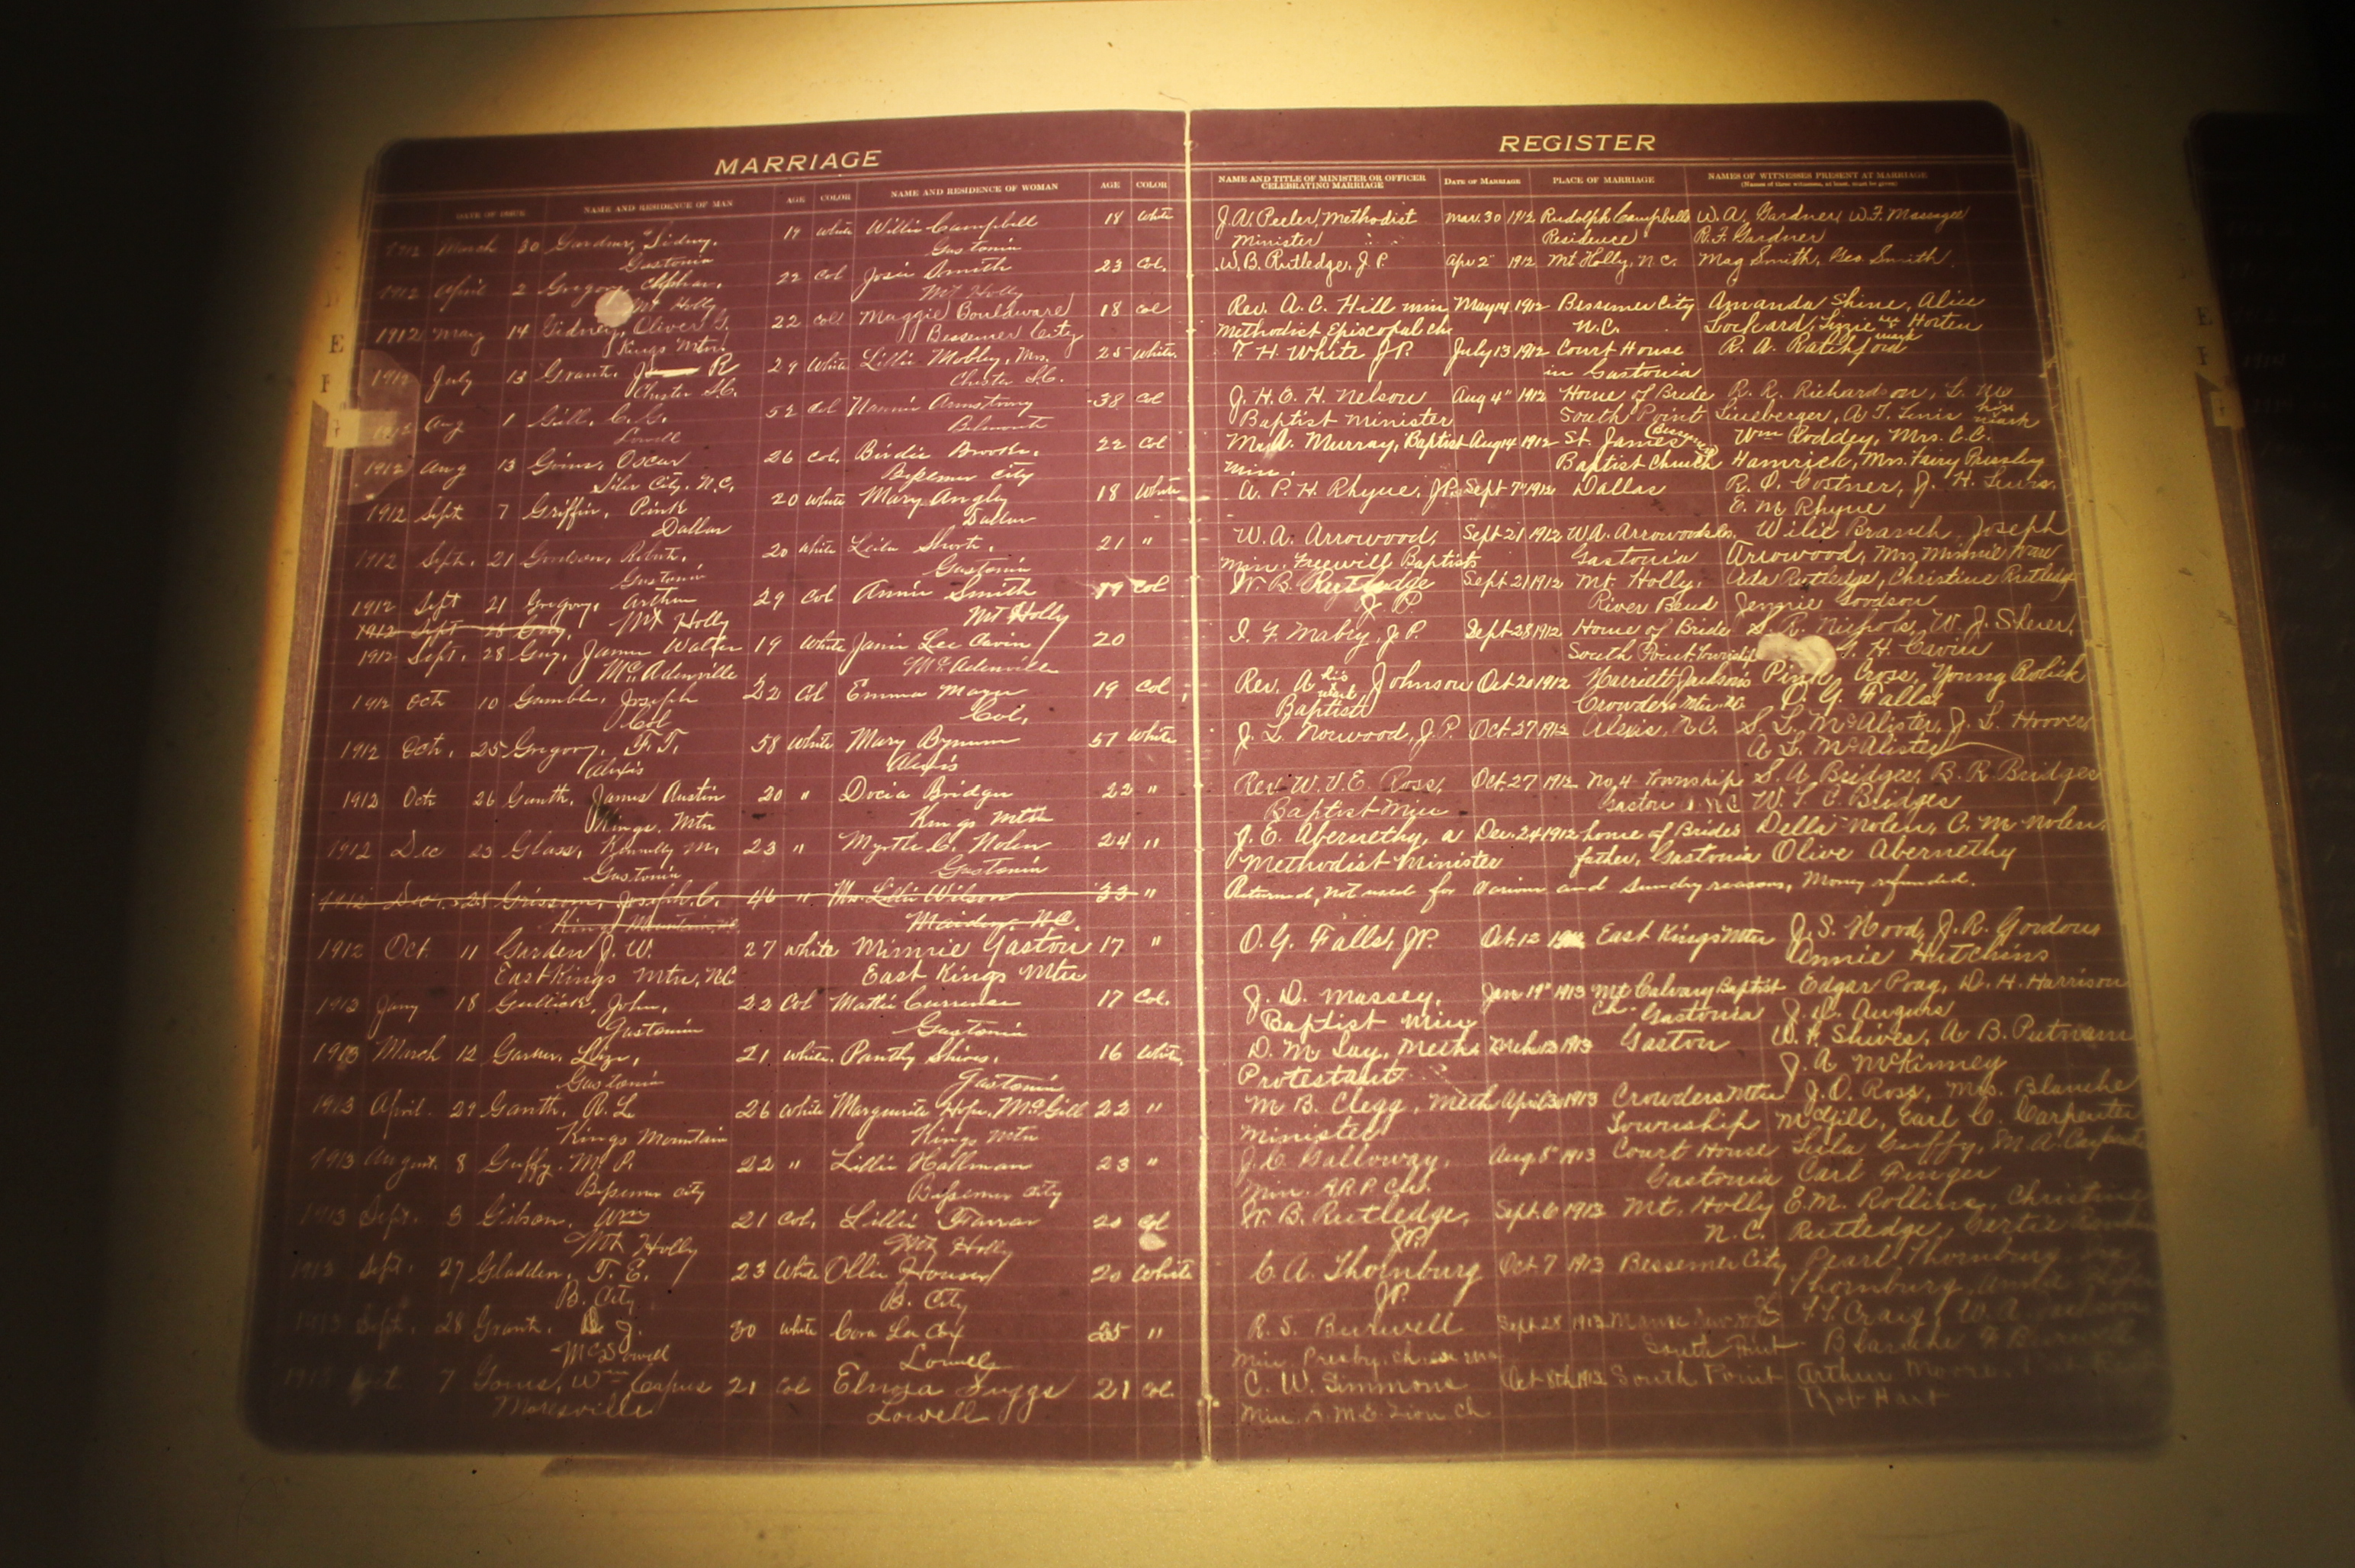 MARRIAGE
DATE OF ISSUE NAME AND RESIDENCE OF MAN AGE COLOR NAME AND RESIDENCE OF WOMAN AGE COLOR
1912 March 30 Gardner, Sidney. 19 White Willie Campbell 18 White
Gastonia Gastonia
1912 April 2 Gregory 22 Col Josie Smith 23 Col.
Mt Holly Mt Holly
1912 May 14 Gidney, Oliver G. 22 Col Maggie Bouldware 18 Col
Kings Mtn. Bessemer City
1912 July 13 Grant, R 29 White Lillie Mobley, Mrs. 25 White.
Chester S.C. Chester S.C.
1912 Aug 1 Gill, C. G. 52 Col Nannie Armstrong 38 Col
Lowell Belmont
1912 Aug 13 Goins, Oscar 26 Col. Birdie Brooks. 22 Col
Siler City. N.C. Bessemer City
1912 Sept 7 Griffin, Pink 20 White Mary Angley 18 White
Dallas Dallas
1912 Sept. 21 Goodson, Robert. 20 White Leila Short. 21 "
Gastonia Gastonia
1912 Sept 21 Gregory, Arthur 29 Col Annie Smith 19 Col
Mt Holly Mt Holly
1912 Sept 28 Guy,
1912 Sept. 28 Guy, James Walter 19 White Janie Lee Cavin 20
McAdenville McAdenville
1912 Oct 10 Gamble, Joseph 22 Col Emma Mayer 19 Col
Col Col.
1912 Oct. 25 Gregory, F. T. 58 White Mary Bynum 57 White
Alexis Alexis
1912 Oct 26 Ganth, James Austin 20 " Docia Bridges 22 "
Kings. Mtn Kings Mtn
1912 Dec 23 Glass, M. 23 " Myrtle C. Nolen 24 "
Gastonia Gastonia
1912 Dec. 28 Grissom, Joseph C. 46 " Mrs. Lillie Wilson 33 "
Kings Mountain, NC Maiden, N.C.
1912 Oct. 11 Garden J. W. 27 white Minnie Gaston 17 "
East Kings Mtn, NC East Kings Mtn
1913 Jany 18 Gullick, John, 22 Col Mattie Currence 17 Col.
Gastonia Gastonia
1913 March 12 21 White. Panthy Shives. 16 White
Gastonia Gastonia
1913 April. 29 Ganth, R. L 26 White Marguerite Hope McGill 22 "
Kings Mountain Kings Mtn
1913 August. 8 Guffy. M. P. 22 " Lillie Hallman 23 "
Bessemer City Bessemer City
1913 Sept. 3 Gibson, Wm 21 Col. Lillie Farrar 20 Col
Mt Holly Mt Holly
1913 Sept. 27 Gladden, T. E. 23 White Ollie Houser 20 White
B. City B. City
1913 Sept. 28 Grant. J. 30 White Cora Lee Coy 25 "
Lowell
1913 Oct 7 Wm 21 Col Elmira Suggs 21 Col.
Moresville Lowell
REGISTER
NAME AND TITLE OF MINISTER OR OFFICER CELEBRATING MARRIAGE DATE OF MARRIAGE PLACE OF MARRIAGE NAMES OF WITNESSES PRESENT AT MARRIAGE
(Names of three witnesses, at least, must be given)
J. A. Peeler, Methodist Mar. 30 1912 Rudolph Campbells W. A. Gardner, W. F. Massagee
Minister Residence R. F. Gardner
W. B. Rutledge, J. P. Apr 2" 1912 Mt Holly, N.C. Mag Smith, Geo Smith.
Rev. A. C. Hill min May 14 1912 Bessemer City Amanda Shine, Alice
Methodist Episcopal Ch N.C. Lockard, Lizzie Horten
mark
T. H. White J.P. July 13 1912 Court House R. A. Ratchford
in Gastonia
J. H. E. H. Nelson Aug 4" 1912 Home of Bride R. R. Richardson, L.
Baptist Minister South Point Lineberger, A. T. his mark
Murray, Baptist Aug 14 1912 St. James Wm Roddey, Mrs. C. C.
Min. Baptist Church Hamrick, Mrs. Fairy Pressley
A. P. H. Rhyne, JP. Sept 7" 1912 Dallas R. O. Costner, J. H. Lewis.
E. M. Rhyne
W. A. Arrowood, Sept 21 1912 W. A. Arrowoods Wilie Branch, Joseph
Min. Freewill Baptist Gastonia Arrowood, Mrs Minnie
W. B. Rutledge Sept 21 1912 Mt. Holly, Ada Rutledge, Christine Rutledge
J P River Bend Jennie Goodson
I. F. Mabry, J.P. Sept 28 1912 Home of Bride S. R. Nichols, W. J. Sherer,
South Point Township H. Cavin
Rev. A his mark Johnson Oct 20 1912 Harriett Jacksons Pink Cross, Young Rolick
Baptist Crowders Mtn. NC O. G. Falls
J. L. Norwood, J. P. Oct 27 1912 Alexis, N.C. S. L. McAlister, J. L. Hoover
A. L. McAlister
Rev. W. V. E. Ross, Oct 27 1912 No. 4 Township S. A. Bridges, B. R. Bridges
Baptist Min Gaston NC W. T. C. Bridges
J. E. Abernethy, a Dec. 24 1912 home of Brides Della Nolen, C. M. Nolen,
Methodist Minister father, Gastonia Olive Abernethy
Returned, not used for various and sundry reasons, Money refunded.
O. G. Falls, JP. Oct. 12 East Kings Mtn J. S. Wood, J. R. Gordous
Annie Hutchins
J. D. Massey, Jan 19" 1913 Mt Calvary Baptist Edgar Poag, D. H. Harrison
Baptist Min Ch. Gastonia Augurs
D. M Lay, Meth. Mch 13 1913 Gaston W. F. Shives, A. B. Putnam
Protestant J. A. McKinney
M B. Clegg, Meth April 30 1913 Crowders Mtn J. O. Ross, Mrs. Blanche
Minister Township McGill, Earl C. Carpenter
J. C. Galloway, Aug. 8" 1913 Court House Lula Guffy, M. A. Carpenter
Min. A.R.P. Ch. Gastonia Carl Finger
W. B. Rutledge, Sept. 6 1913 Mt. Holly E. M. Rollins, Christine
J.P. N.C. Rutledge, Gertie
C. A. Thornburg Oct 7 1913 Bessemer City Pearl Thornburg,
J.P. Thornburg,
R. S. Burwell Sept 28 1913 Manse Craig, W. A.
Min. Presby. Ch. South Point Blanche
C. W. Simmons Oct 8th 1913 South Point Arthur Moore,
Min. A. M. E. Zion Ch Rob Hart